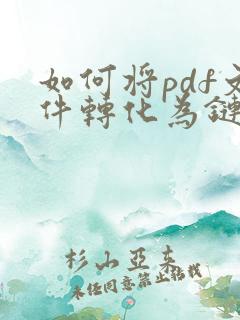 如何将pdf文
件轉化为鏈
杉山亞末
未经同意禁止搭载